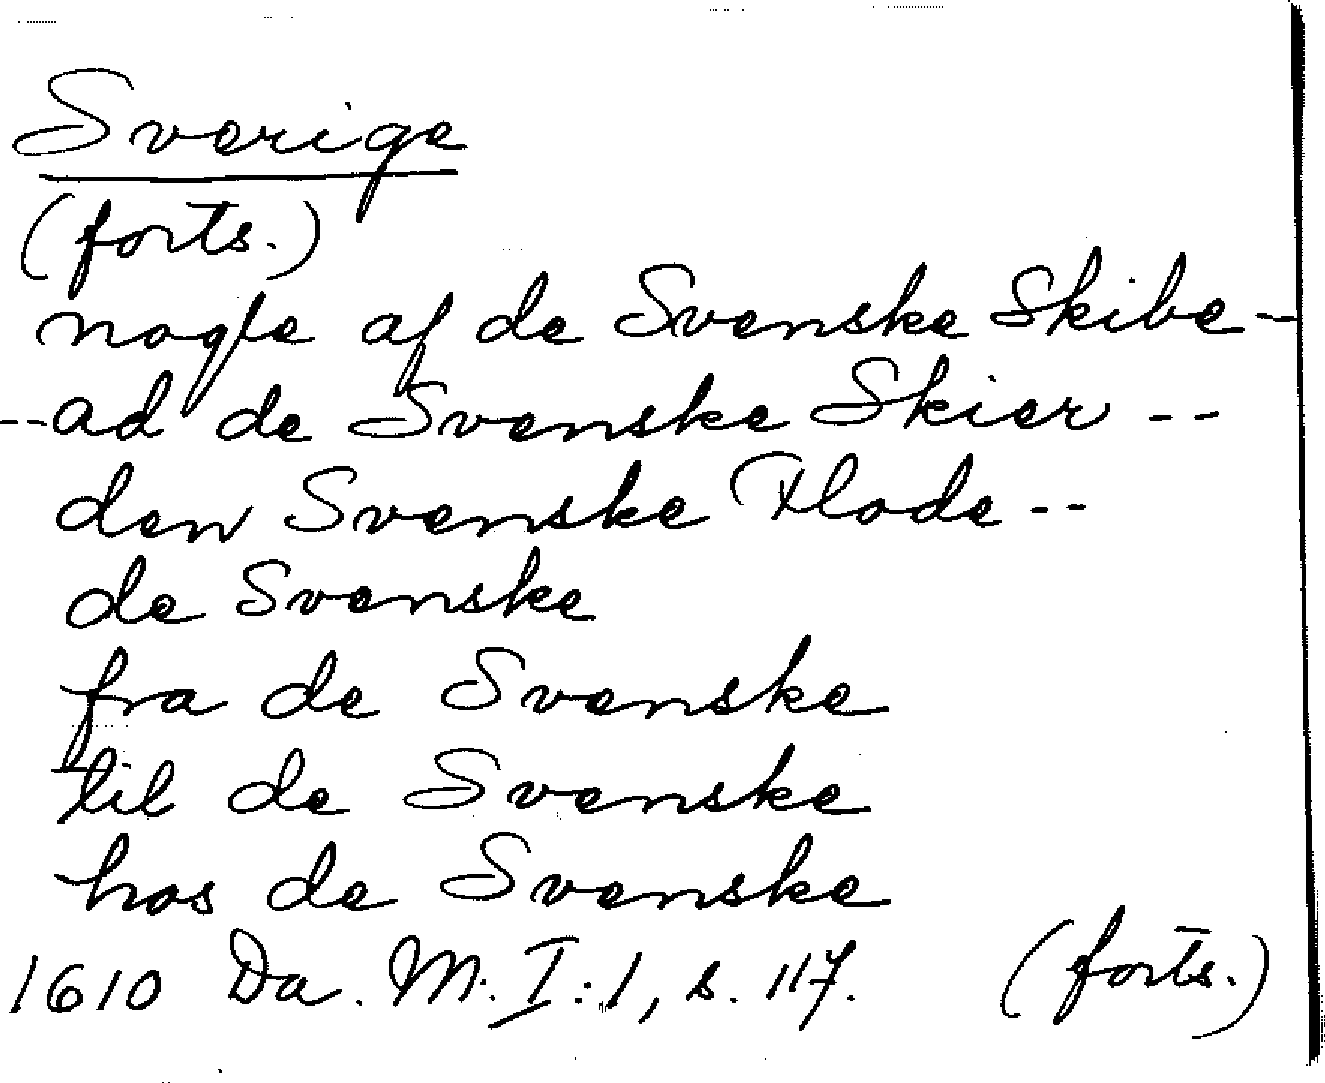 Sverige
(forts.)
nogle af de Svenske Skibe -
-- ad de Svenske Skier --
den Svenske Flode --
de Svenske
fra de Svenske
til de Svenske
hos de Svenske
1610 Da. M. I:1, s. 117. (forts.)